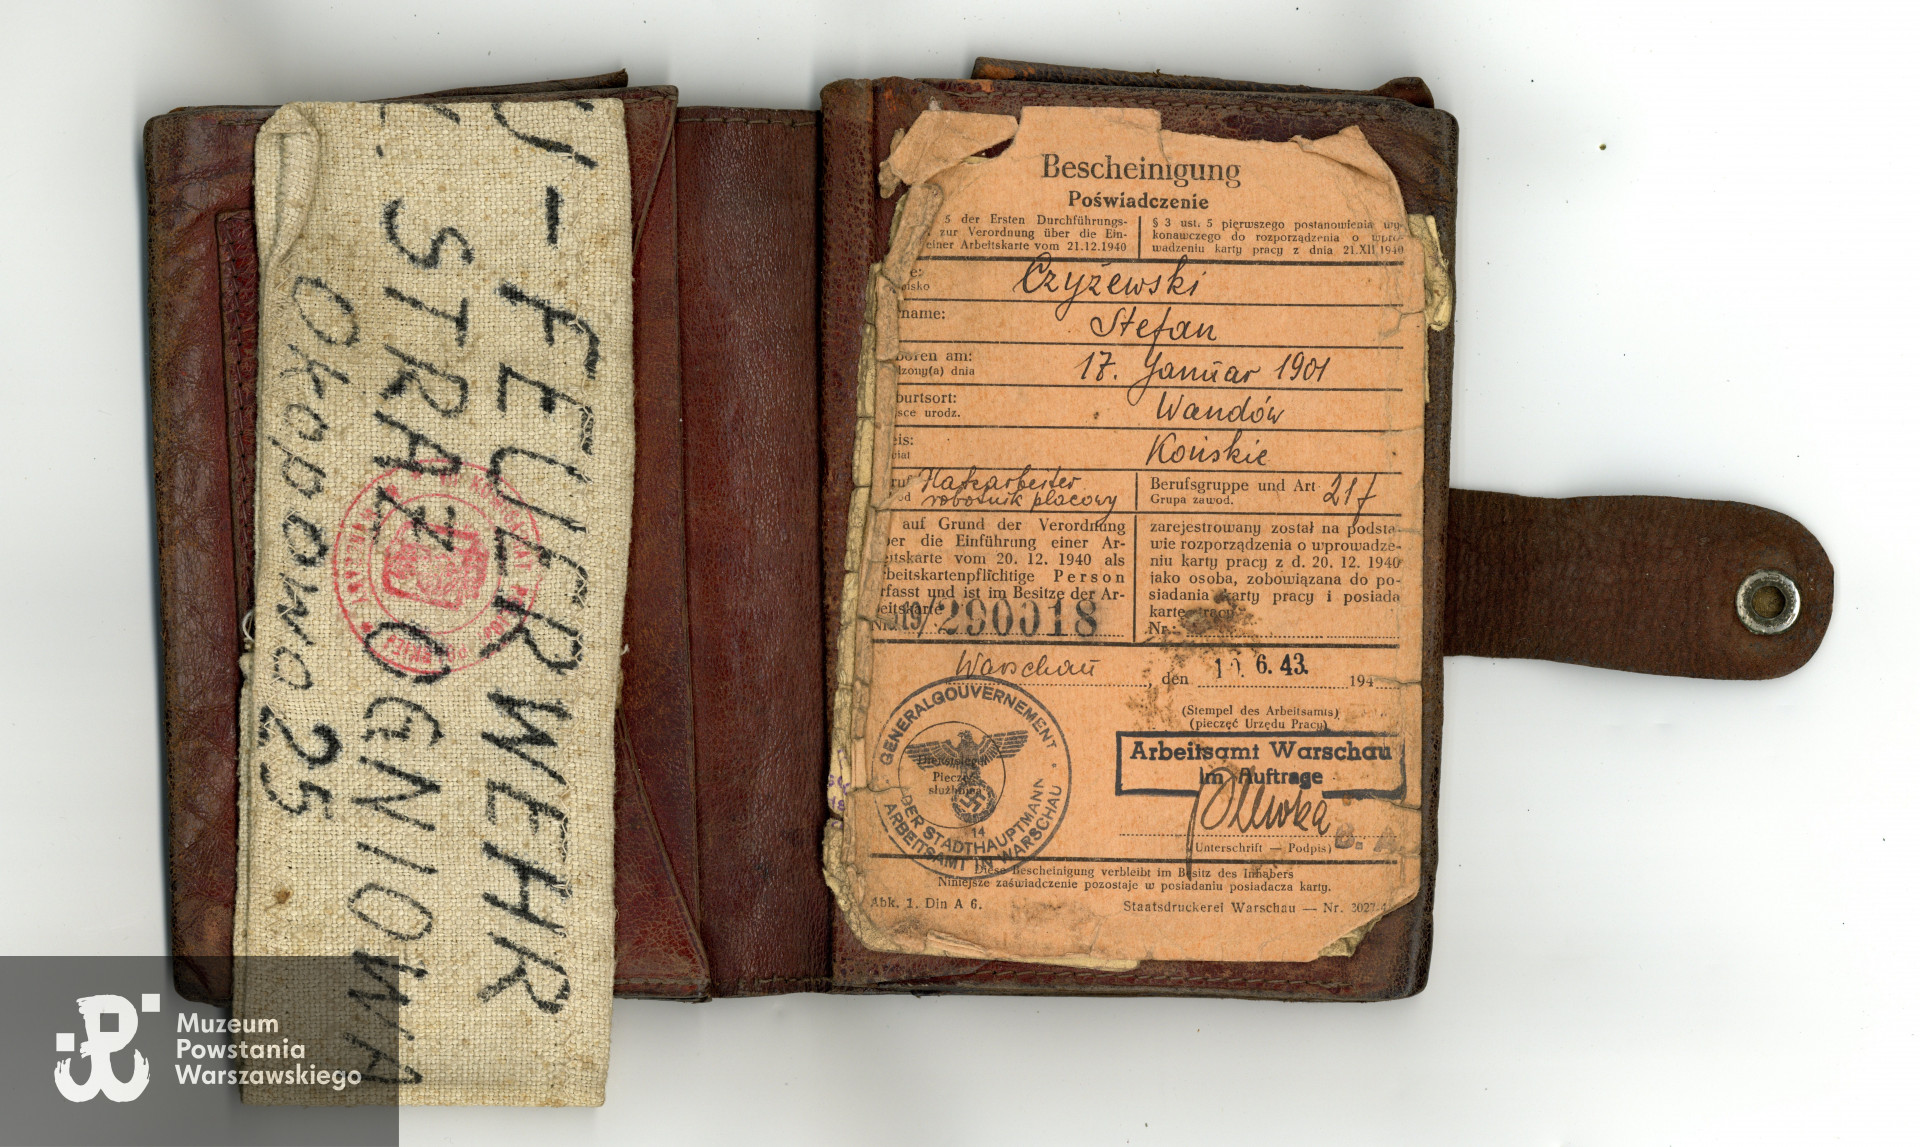 - FEUERWEHR
STRAŻ OGNIOWA
Okopowa 25
Bescheinigung
Poświadczenie
5 der Ersten Durchführungs-
zur Verordnung über die Ein-
einer Arbeitskarte vom 21.12.1940
§ 3 ust. 5 pierwszego postanowienia wy-
konawczego do rozporządzenia o wpro-
wadzeniu karty pracy z dnia 21.XII 1940
Czyżewski
name:
Stefan
boren am:
dzony(a) dnia
17. Januar 1901
burtsort:
sce urodz.
Wandów
eis:
Końskie
Platzarbeiter
robotnik placowy
Berufsgruppe und Art
Grupa zawod.
21f
auf Grund der Verordnung
ber die Einführung einer Ar-
eitskarte vom 20. 12. 1940 als
rbeitskartenpflichtige Person
rfasst und ist im Besitze der Ar-
eitskarte
Nr. 119/290018
zarejestrowany został na podsta-
wie rozporządzenia o wprowadze-
niu karty pracy z d. 20. 12. 1940
jako osoba, zobowiązana do po-
siadania karty pracy i posiada
kartę pracy
Nr.
Warschau, den 6. 43. 194
(Stempel des Arbeitsamts)
(pieczęć Urzędu Pracy)
GENERALGOUVERNEMENT
DER STADTHAUPTMANN
ARBEITSAMT IN WARSCHAU
14
Dienstsiegel
Pieczęć
służbowa
Arbeitsamt Warschau
Im Auftrage
B. A.
(Unterschrift — Podpis)
Diese Bescheinigung verbleibt im Besitz des Inhabers
Niniejsze zaświadczenie pozostaje w posiadaniu posiadacza karty.
Abk. 1. Din A 6.
Staatsdruckerei Warschau — Nr. 3027-4
Muzeum
Powstania
Warszawskiego